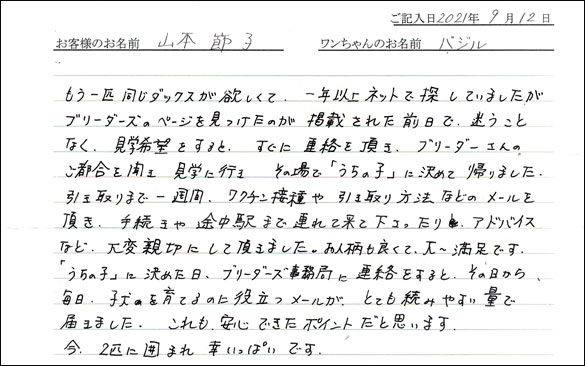 ご記入日2021年 9月12日
お客様のお名前 山本 節子 ワンちゃんのお名前 バジル
もう一匹同じダックスが欲しくて、一年以上ネットで探していましたが
ブリーダーズのページを見つけたのが掲載された前日で、迷うこと
なく、見学希望をすると、すぐに連絡を頂き、ブリーダーさんの
ご都合を聞き見学に行き その場で「うちの子」に決めて帰りました。
引き取りまで一週間、ワクチン接種や引き取り方法などのメールを
頂き、手続きや途中駅まで連れて来て下さったり、アドバイス
など、大変親切にして頂きました。お人柄も良くて、大〜満足です。
「うちの子」に決めた日、ブリーダーズ事務局に連絡をすると、その日から、
毎日、子犬を育てるのに役立つメールが、とても読みやすい量で
届きました。これも、安心できたポイントだと思います。
今、2匹に囲まれ幸いっぱいです。